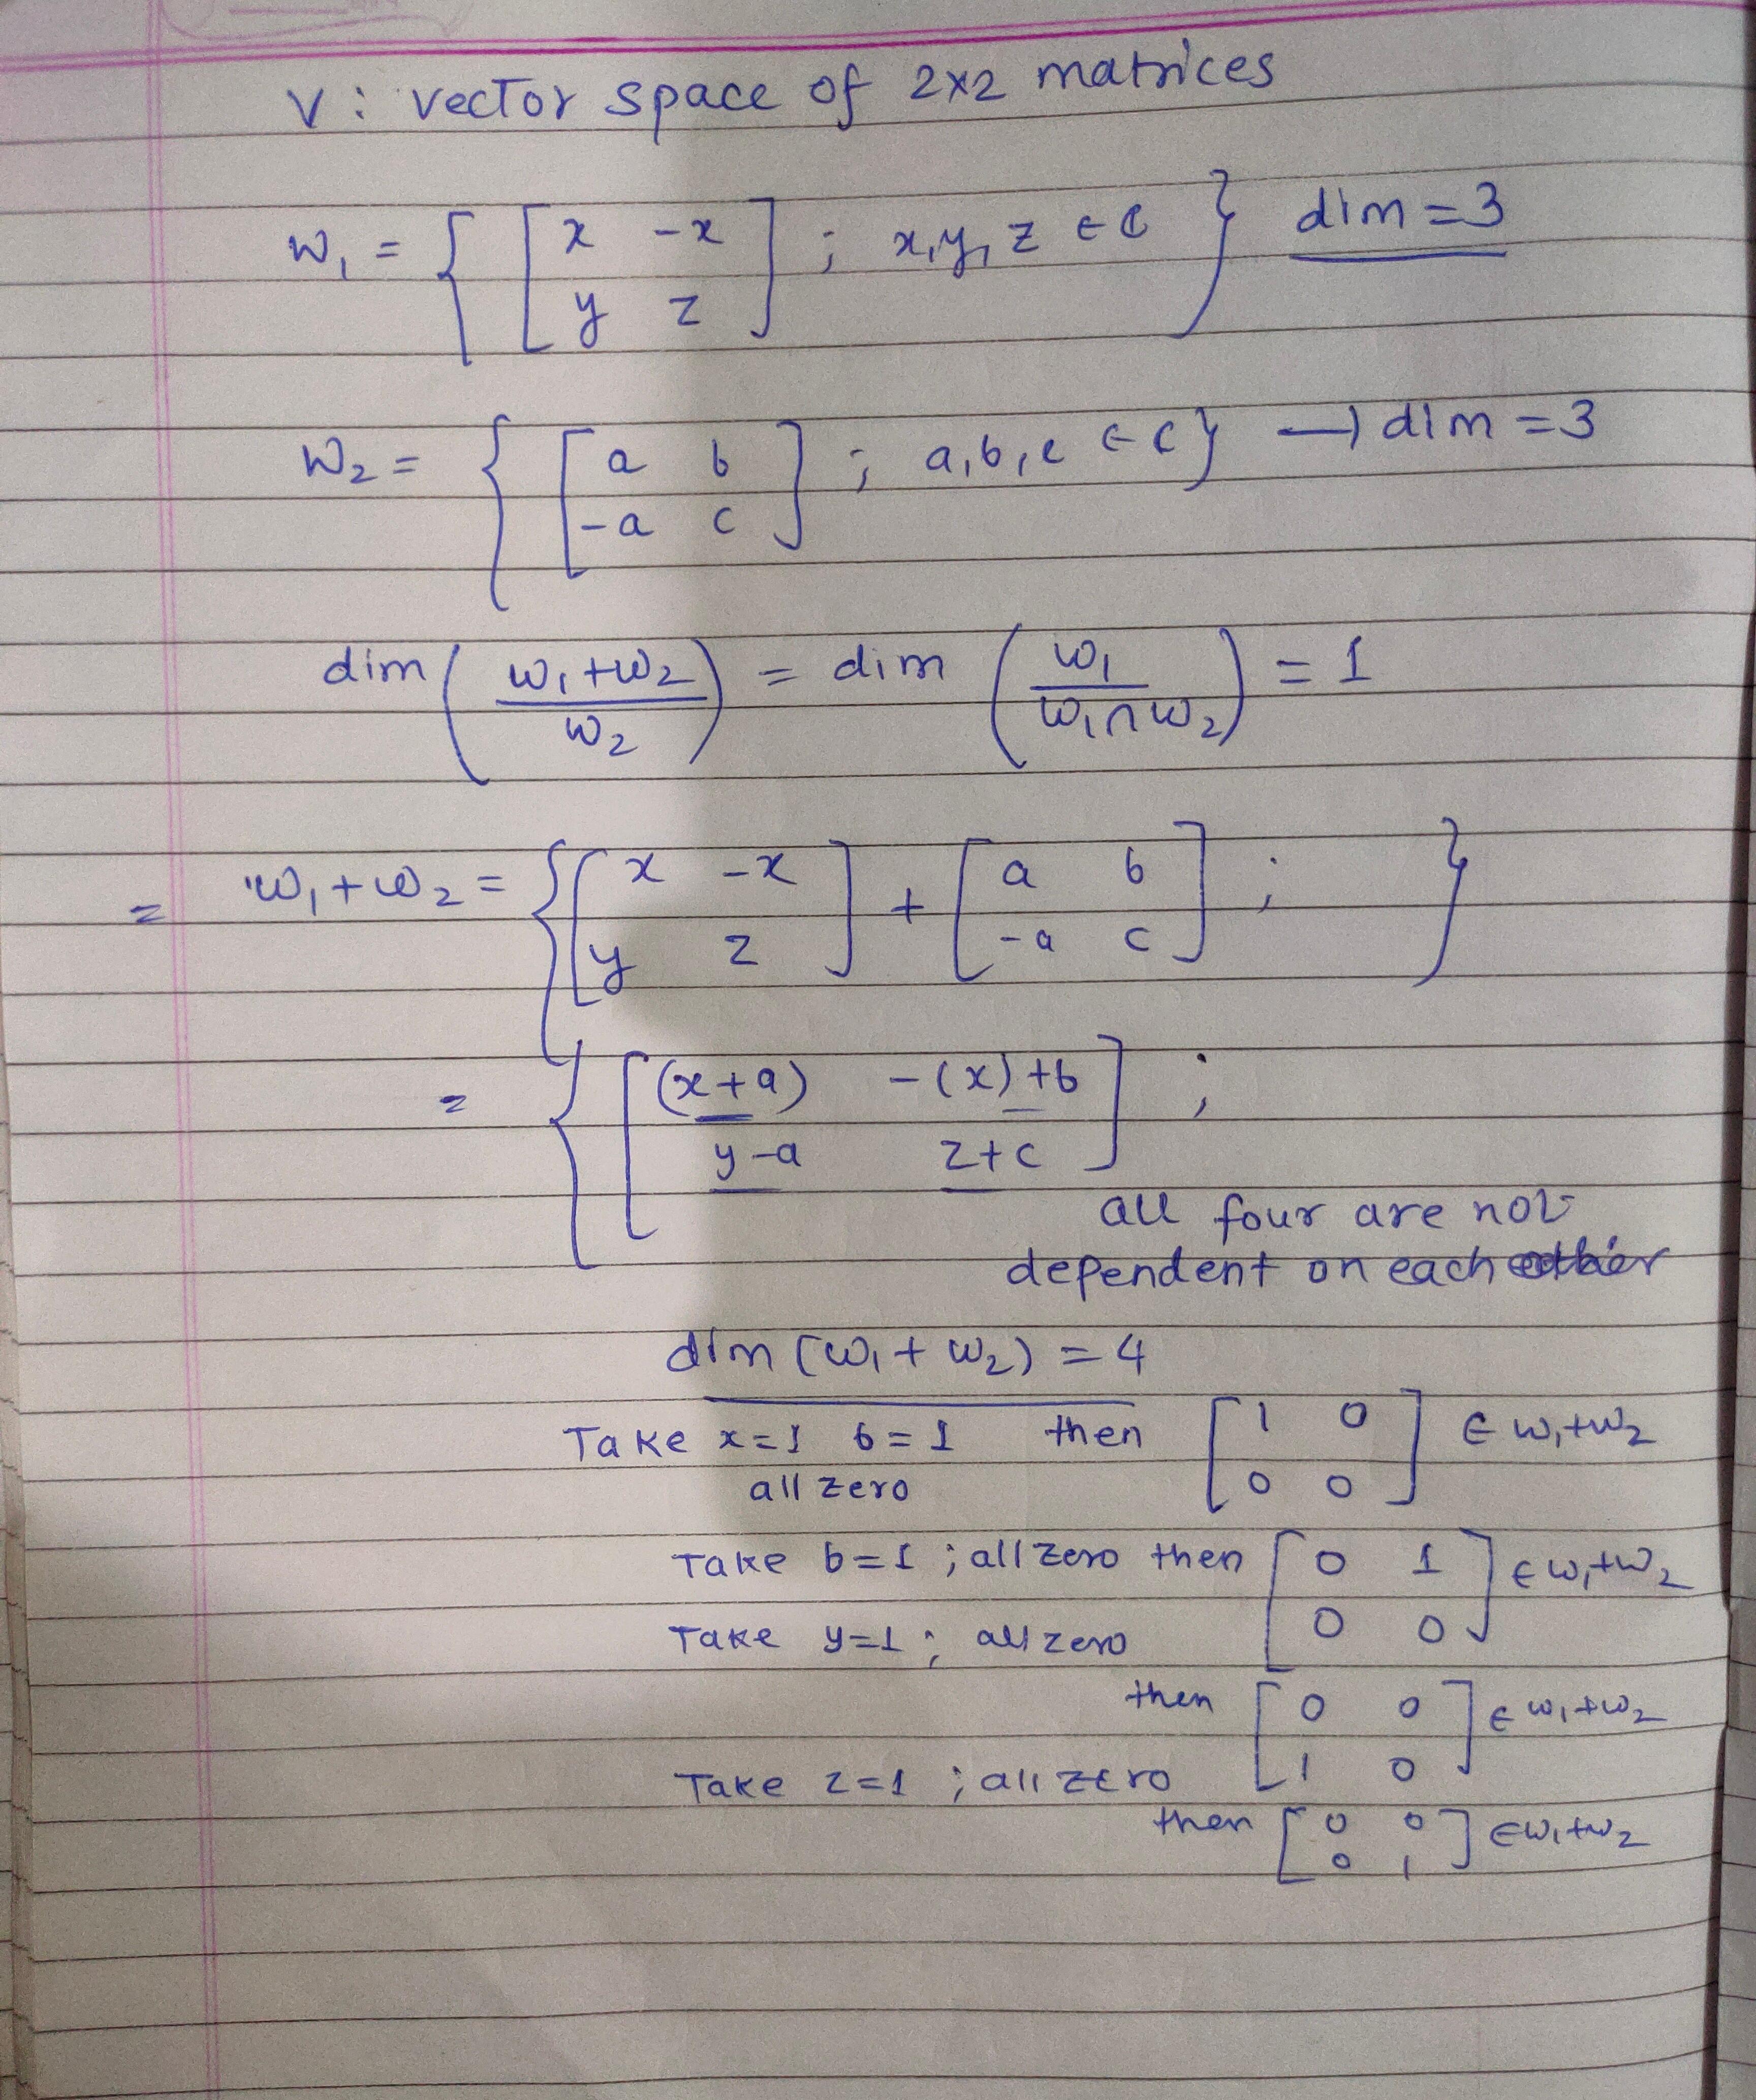 V : vector space of 2x2 matrices
W₁ = { [ x -x ; y z ] ; x, y, z ∈ ℂ } dim = 3
W₂ = { [ a b ; -a c ] ; a, b, c ∈ ℂ } → dim = 3
dim ( (W₁+W₂) / W₂ ) = dim ( W₁ / (W₁∩W₂) ) = 1
= W₁+W₂ = { [ x -x ; y z ] + [ a b ; -a c ] ; }
= { [ (x+a) -(x)+b ; y-a z+c ] ;
all four are not
dependent on each other
dim (W₁+W₂) = 4
Take x=1 b=1 then [ 1 0 ; 0 0 ] ∈ W₁+W₂
all zero
Take b=1 ; all zero then [ 0 1 ; 0 0 ] ∈ W₁+W₂
Take y=1 ; all zero
then [ 0 0 ; 1 0 ] ∈ W₁+W₂
Take z=1 ; all zero
then [ 0 0 ; 0 1 ] ∈ W₁+W₂